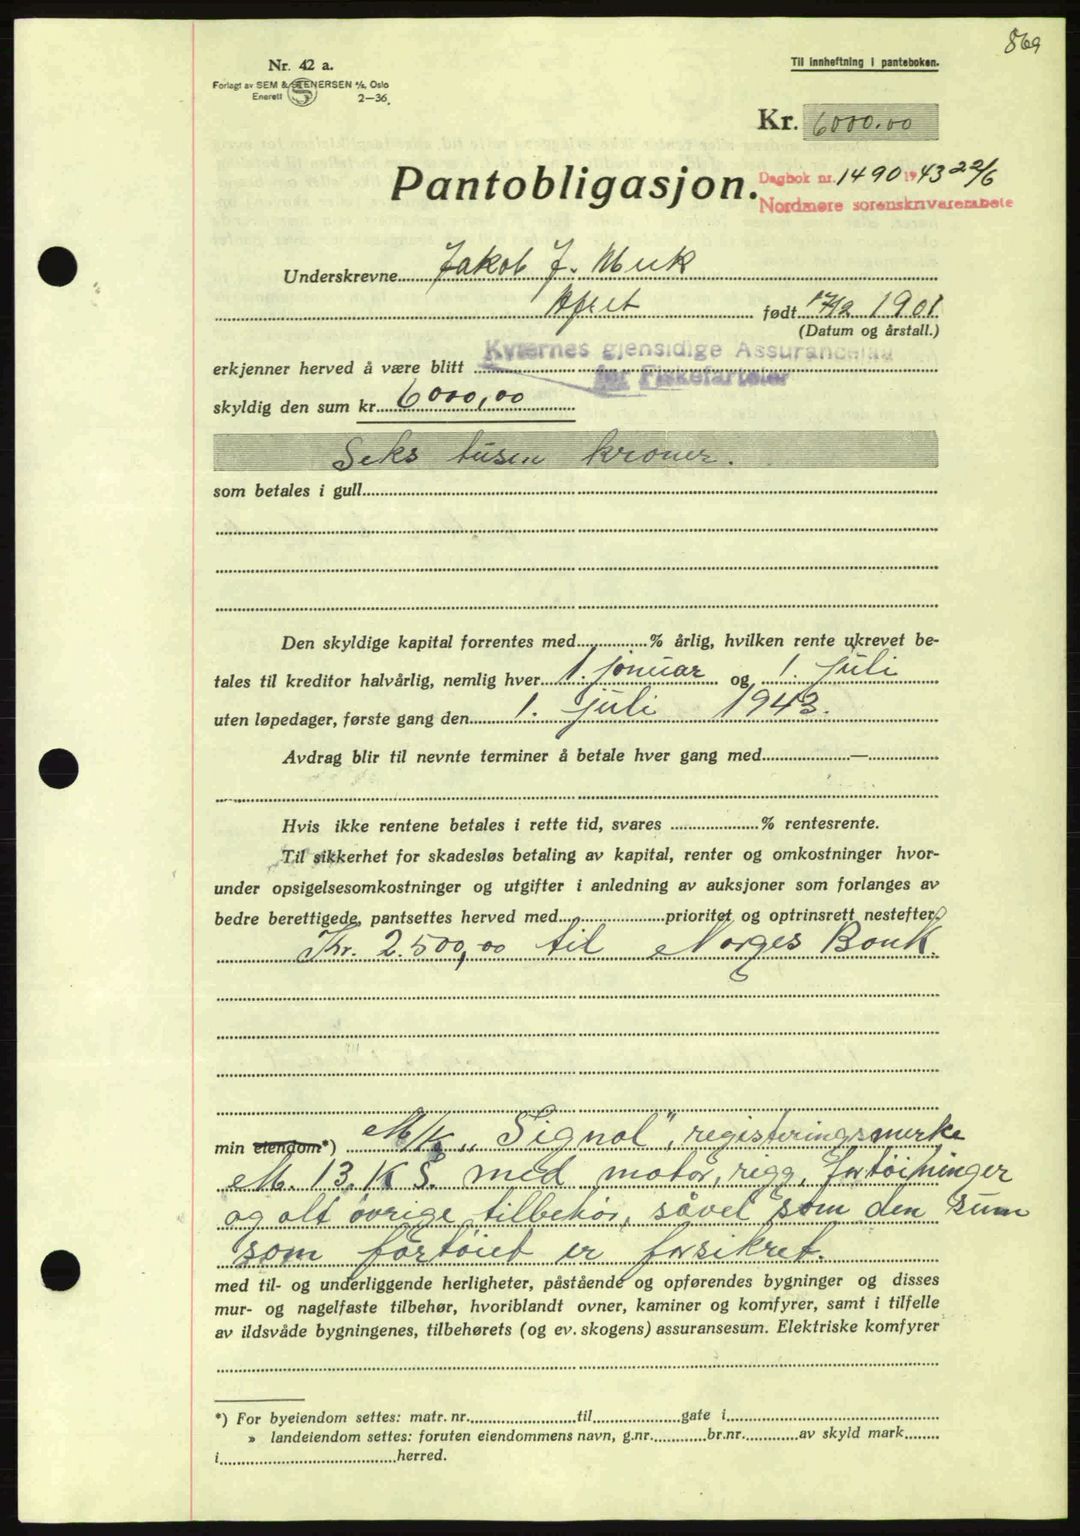 869
Nr. 42 a.
Forlagt av SEM & STENERSEN A/S, Oslo
Enerett 2—36.
Til innheftning i panteboken.
Kr. 6000.00
Pantobligasjon.
Dagbok nr. 1490 1943 22/6
Nordmøre sorenskriverembete
Underskrevne Jakob J.
født 17/12 1901
(Datum og årstall.)
erkjenner herved å være blitt
gjensidige Assuranselag
for Fiskefartøier
skyldig den sum kr. 6000,00
Seks tusen kroner.
som betales i gull
Den skyldige kapital forrentes med % årlig, hvilken rente ukrevet be-
tales til kreditor halvårlig, nemlig hver 1. januar og 1. juli
uten løpedager, første gang den 1. juli 1943.
Avdrag blir til nevnte terminer å betale hver gang med —
Hvis ikke rentene betales i rette tid, svares % rentesrente.
Til sikkerhet for skadesløs betaling av kapital, renter og omkostninger hvor-
under opsigelsesomkostninger og utgifter i anledning av auksjoner som forlanges av
bedre berettigede, pantsettes herved med prioritet og optrinsrett nestefter
Kr. 2.500,00 til Norges Bank.
min eiendom*) M/K „Signal", registeringsmerke
M. 13. K S. med motor, rigg, fortøininger
og alt øvrige tilbehør, såvel som den sum
som fartøiet er forsikret.
med til- og underliggende herligheter, påstående og opførendes bygninger og disses
mur- og nagelfaste tilbehør, hvoriblandt ovner, kaminer og komfyrer, samt i tilfelle
av ildsvåde bygningenes, tilbehørets (og ev. skogens) assuransesum. Elektriske komfyrer
*) For byeiendom settes: matr. nr. til gate i
» landeiendom settes: foruten eiendommens navn, g.nr. br.nr. av skyld mark
i herred.